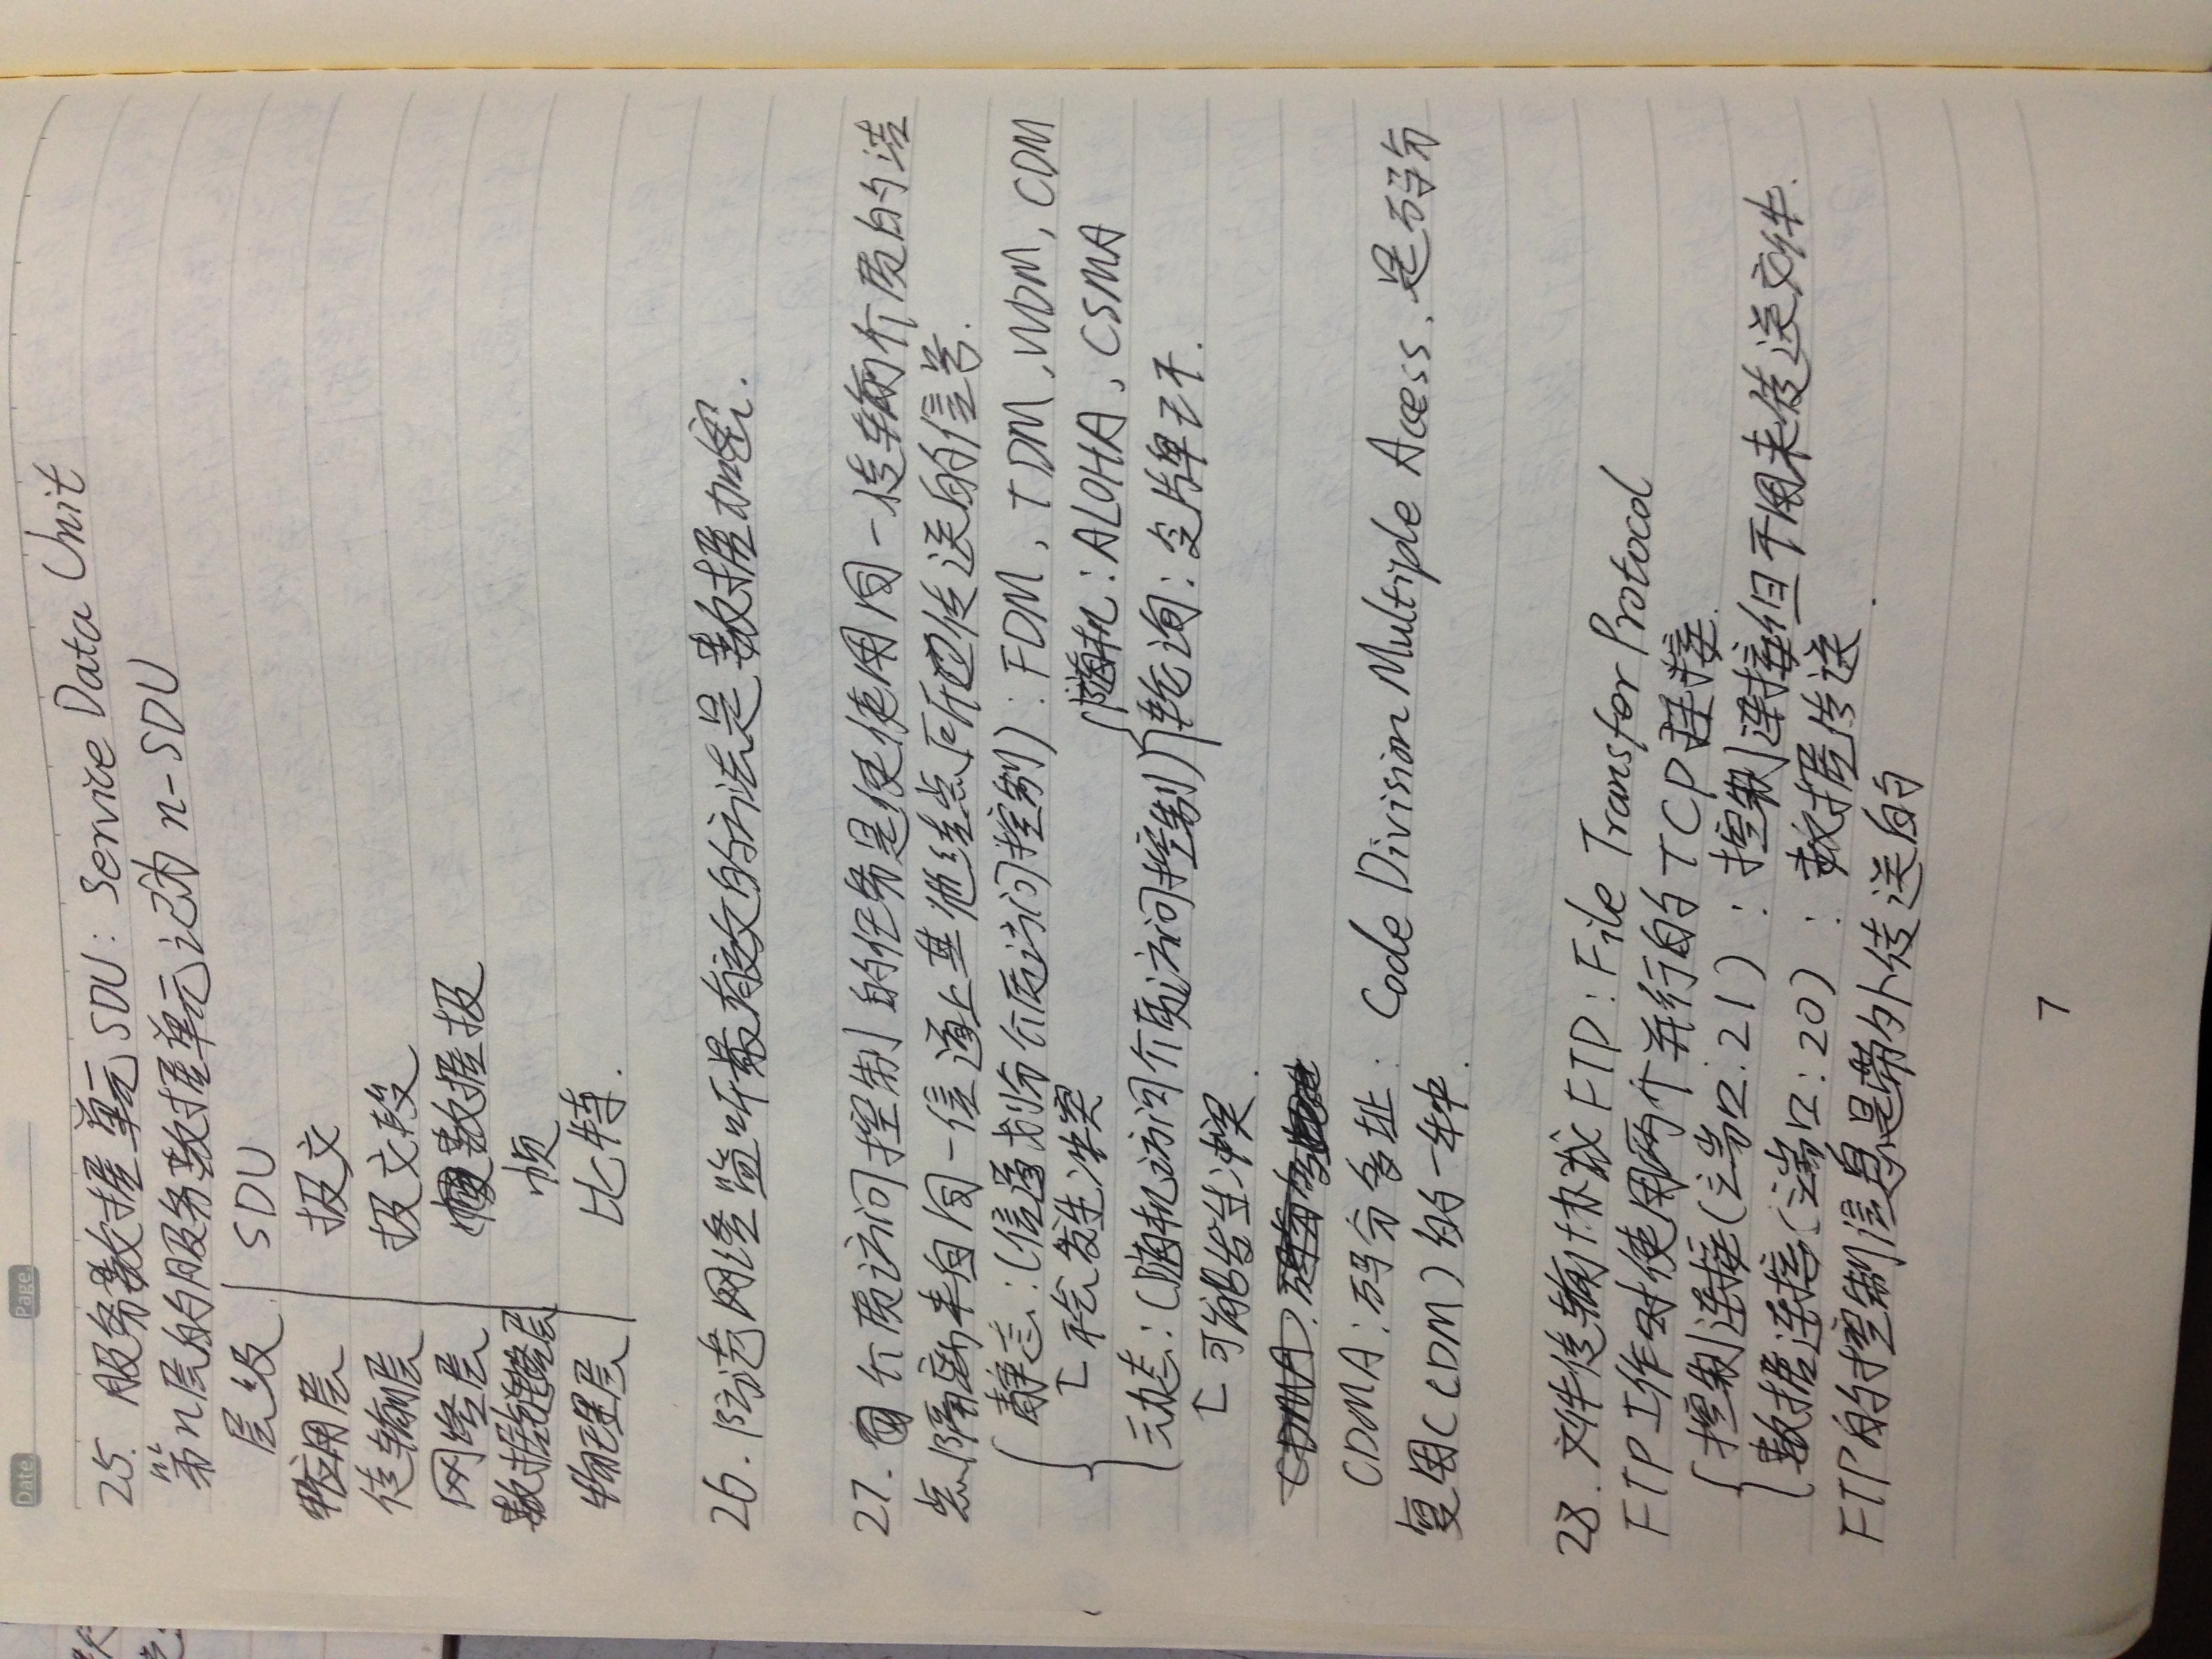 Date. Page.
25. 服务数据单元SDU: Service Data Unit
第n层的服务数据单元记为 n-SDU
层级 | SDU
应用层 | 报文
传输层 | 报文段
网络层 | 数据报
数据链路层 | 帧
物理层 | 比特.
26. 防范网络监听最有效的方法是数据加密.
27. 介质访问控制的任务是使使用同一传输介质的结
点隔离来自同一信道上其他结点所传送的信号.
静态:(信道划分介质访问控制): FDM, TDM, WDM, CDM
不会发生冲突
随机: ALOHA、CSMA
动态:(随机访问介质访问控制)
轮询: 令牌环.
可能发生冲突.
CDMA: 码分多址
CDMA: 码分多址: Code Division Multiple Access, 是码分
复用(CDM)的一种.
28. 文件传输协议FTP: File Transfer Protocol
FTP工作时使用两个并行的TCP连接.
控制连接(端口:21): 控制连接但不用来传送文件.
数据连接(端口:20): 数据传送.
FTP的控制信息是带外传送的
7